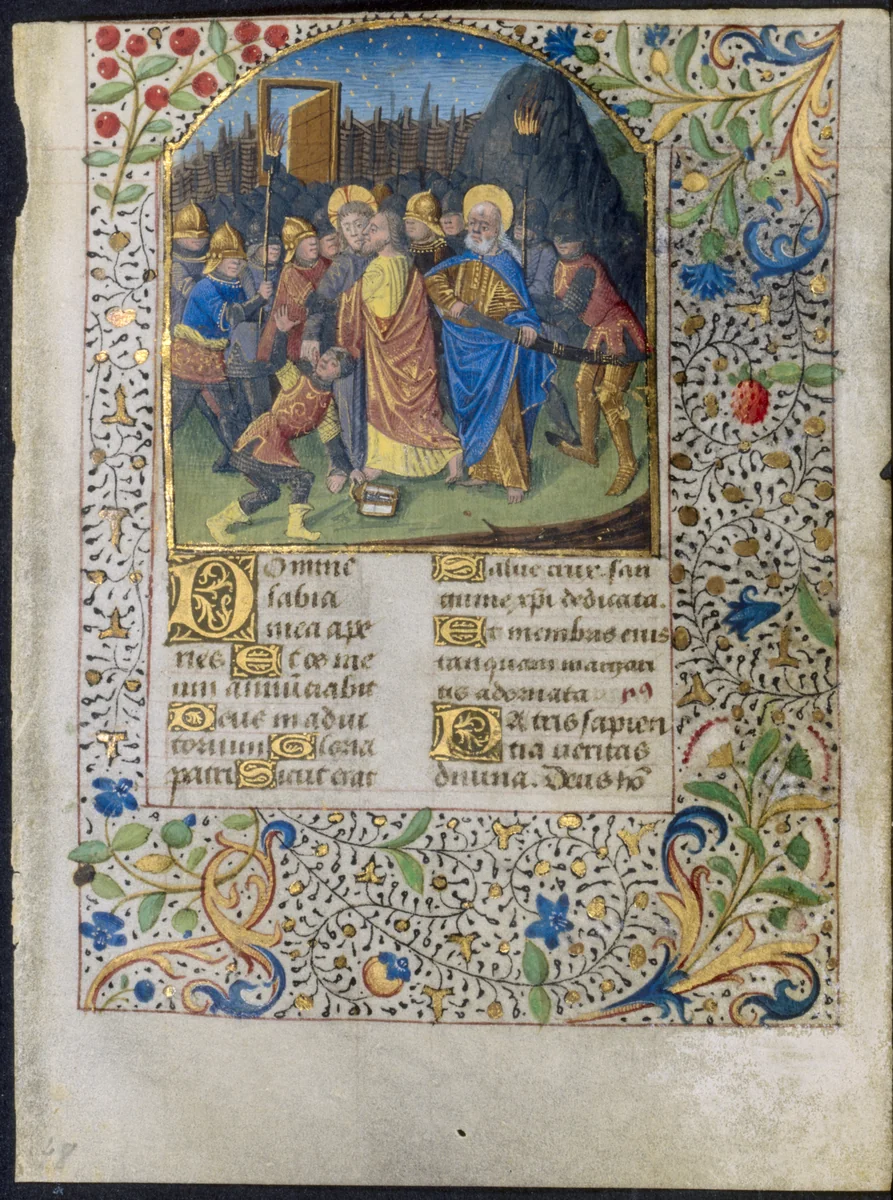 Domine
labia
mea ape
ries Et os me
um annūciabit
Deus in adiut
torium Gloria
patri Sicut erat
Salue crux. san
guine xp̄i dedicata.
Et membris eius
tanquam margari
tis adornata
Patris sapien
tia ueritas
diuina. Deus hō